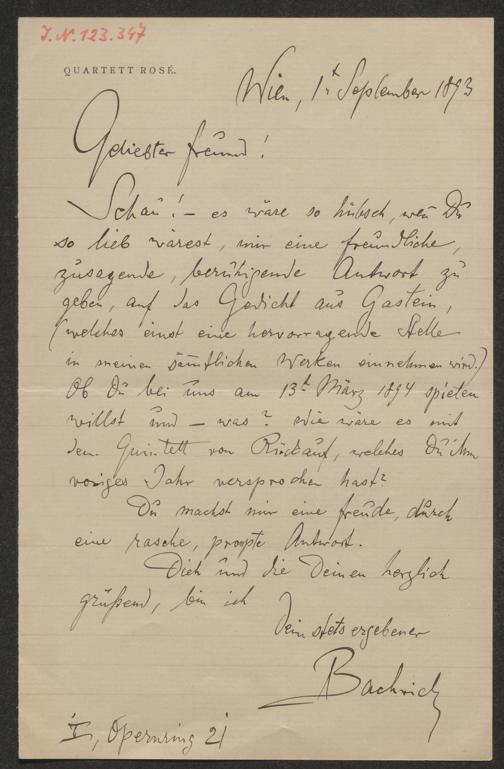 J.N. 123.347
QUARTETT ROSÉ.
Wien, 1t September 1893
Geliebter Freund!
Schau! – es wäre so hübsch, wen̄ Du
so lieb wärest, mir eine freundliche,
zusagende, beruhigende Antwort zu
geben, auf das Gedicht aus Gastein,
(welches einst eine hervorragende Stelle
in meinen sämtlichen Werken einnehmen wird.)
Ob Du bei uns am 13t März 1894 spielen
willst und – was? Wie wäre es mit
dem Quintett von Rückauf, welches Du ihm
voriges Jahr versprochen hast?
Du machst mir eine Freude, durch
eine rasche, prompte Antwort.
Dich und die Deinen herzlich
grüßend, bin ich
Dein stets ergebener
Bachrich
I, Opernring 21